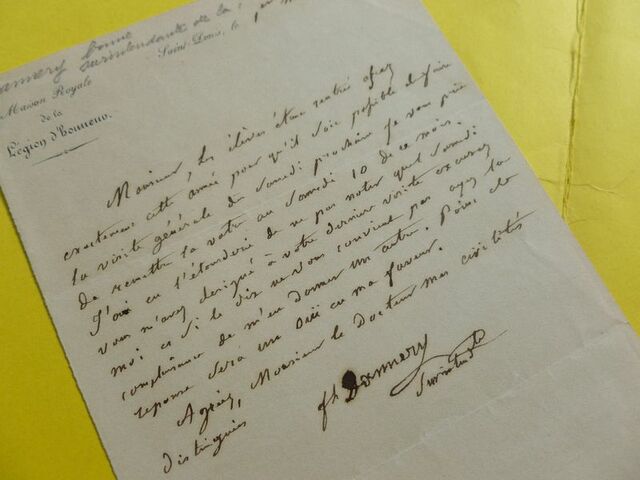 Dannery bonne
surintendante de la
Saint-Denis, le 1er
Maison Royale
de la
Légion d'honneur.
Monsieur, les élèves étant rentré assez
exactement cette année pour qu'il soit possible de faire
la visite générale de Samedi prochain je vous prie
de remettre la votre au Samedi 10 de ce mois.
J'ai eu l'étourderie de ne pas noter quel Samedi
vous m'avez designé à votre dernière visite excusez
moi et si le dix ne vous convient pas ayez la
complaisance de m'en donner un autre. Point de
reponse sera un oui en ma faveur.
Agréez, Monsieur le Docteur mes civilités
distinguées
Dannery
Surintdte